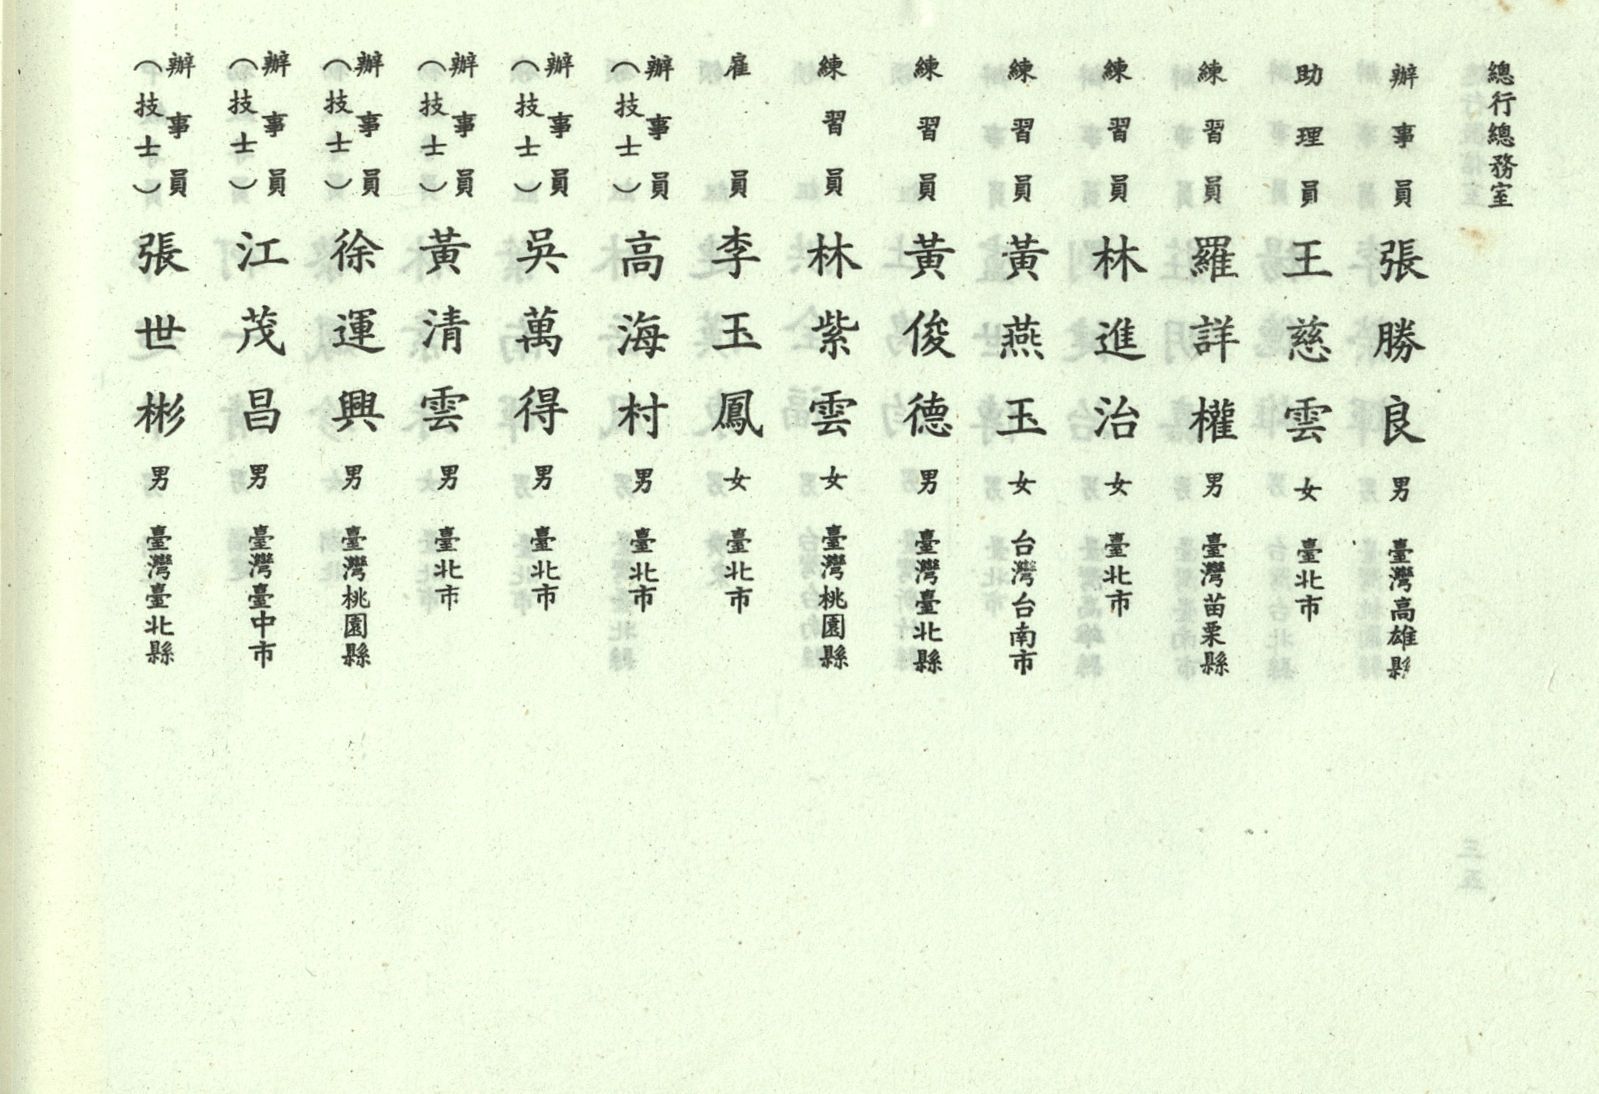 總行總務室
辦事員 張勝良 男 臺灣高雄縣
助理員 王慈雲 女 臺北市
練習員 羅詳權 男 臺灣苗栗縣
練習員 林進治 女 臺北市
練習員 黃燕玉 女 台灣台南市
練習員 黃俊德 男 臺灣臺北縣
練習員 林紫雲 女 臺灣桃園縣
雇員 李玉鳳 女 臺北市
辦事員(技士) 高海村 男 臺北市
辦事員(技士) 吳萬得 男 臺北市
辦事員(技士) 黃清雲 男 臺北市
辦事員(技士) 徐運興 男 臺灣桃園縣
辦事員(技士) 江茂昌 男 臺灣臺中市
辦事員(技士) 張世彬 男 臺灣臺北縣